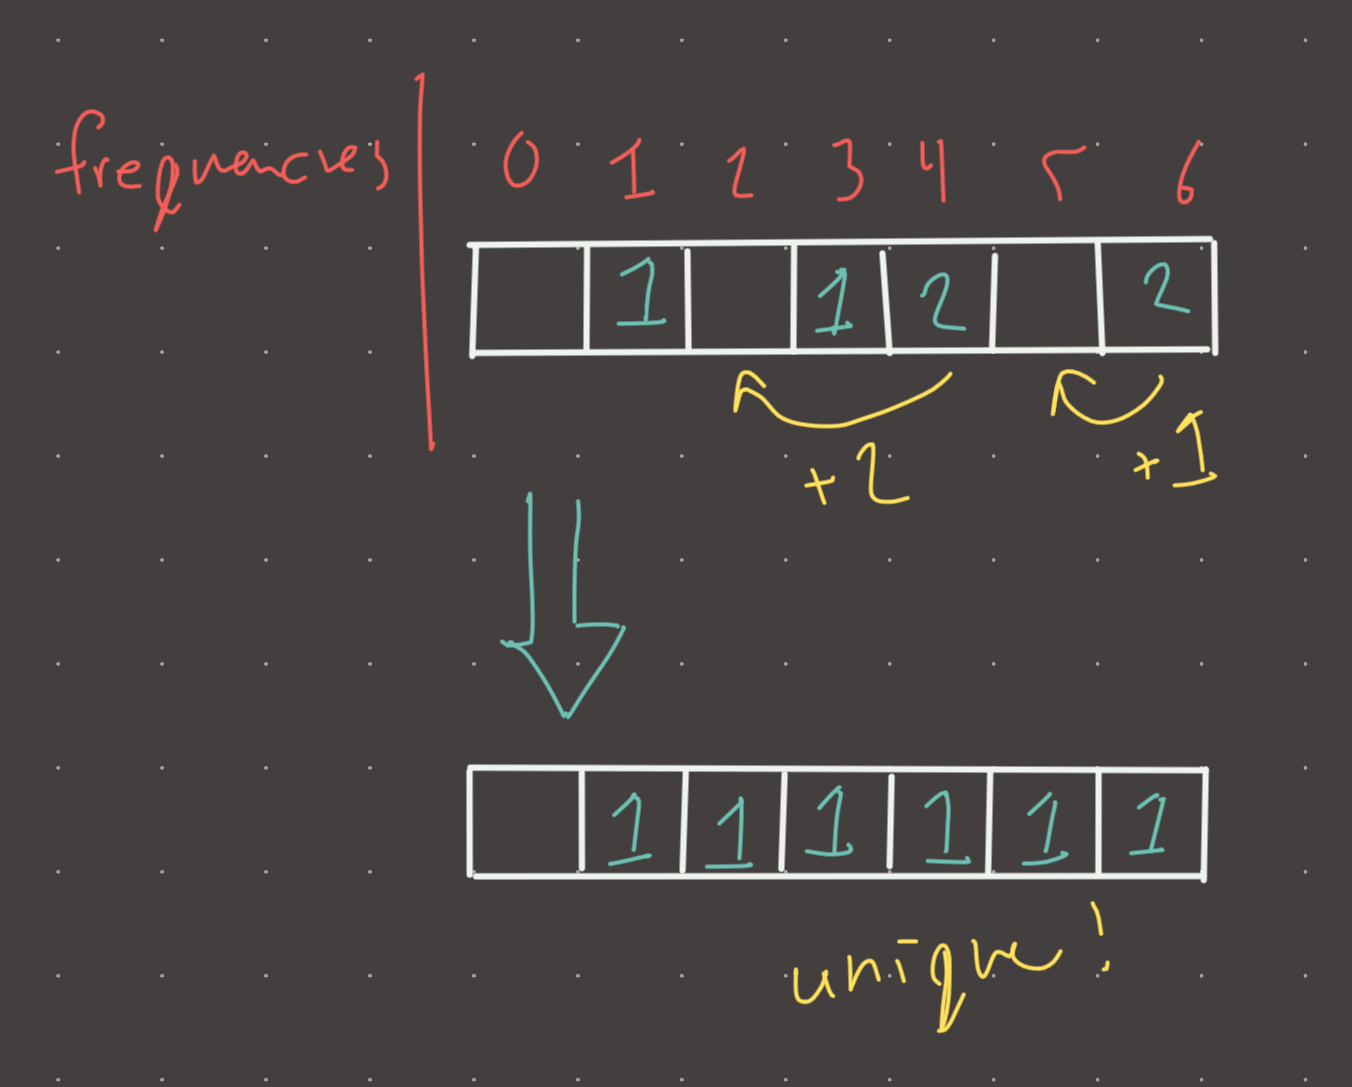 frequencies 0 1 2 3 4 5 6
1 1 2 2
+2 +1
1 1 1 1 1 1
unique!